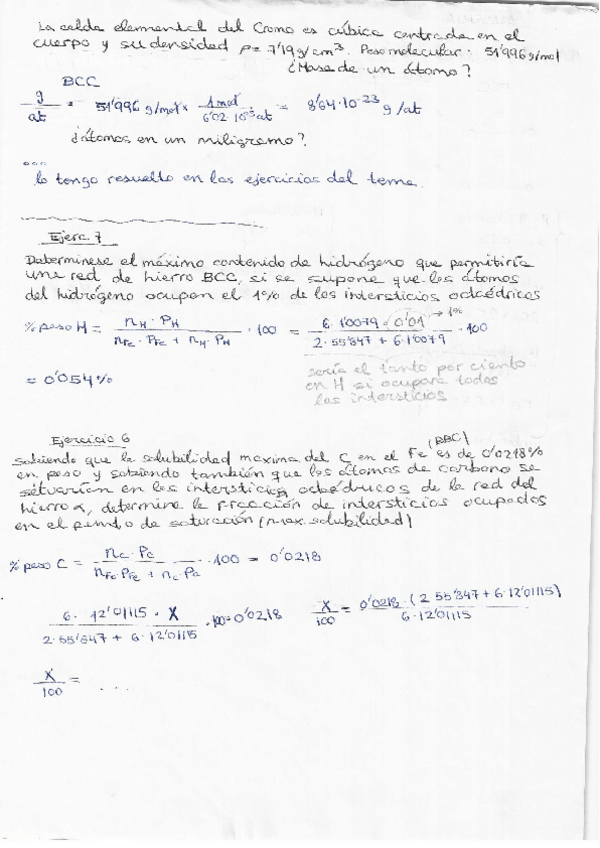 La celda elemental del Cromo es cúbica centrada en el
cuerpo y su densidad ρ = 7'19 g/cm³. Peso molecular: 51'996 g/mol
¿Masa de un átomo?
BCC
g/at = 51'996 g/mol x 1 mol / 6'02·10²³ at = 8'64·10⁻²³ g/at
¿átomos en un miligramo?
...
lo tengo resuelto en los ejercicios del tema.
Ejerc. 7
Determínese el máximo contenido de hidrógeno que permitiría
una red de hierro BCC, si se supone que los átomos
del hidrógeno ocupan el 1% de los intersticios octaédricos
% peso H = nH · PH / nFe · PFe + nH · PH · 100 = 6·1'0079 · 0'01 / 2·55'847 + 6·1'0079 · 100
→ 1%
= 0'054%
sería el tanto por ciento
en H si ocupara todos
los intersticios
Ejercicio 6
(BBC)
Sabiendo que la solubilidad maxima del C en el Fe es de 0'0218%
en peso y sabiendo también que los átomos de carbono se
situarían en los intersticios octaédricos de la red del
hierro α, determine la fracción de intersticios ocupados
en el punto de saturación (max. solubilidad)
% peso C = nc · Pc / nFe PFe + nc · Pc · 100 = 0'0218
6 · 12'01115 · X / 2·55'847 + 6·12'01115 · 100 = 0'0218
X/100 = 0'0218 · (2·55'847 + 6·12'01115) / 6·12'01115
X/100 = ...